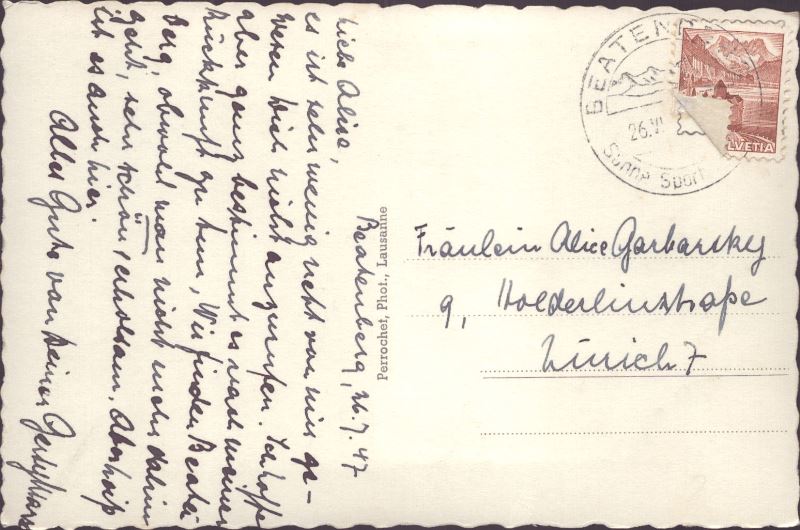 Beatenberg, 26.7.47
Liebe Alice,
es ist sehr wenig nett von mir ge-
wesen Dich nicht anzurufen. Ich hoffe
aber ganz bestimmt es nach meiner
Rückkunft zu tun. Wir finden Beaten-
berg, obwohl man nicht mehr dahin
geht, sehr schön & erholsam,
ist es auch hier.
Alles Gute von Deiner
Perrochet, Phot., Lausanne
BEATENB
26.VI
Sonne Sport
LVETIA
Fräulein Alice Garbarsky
9, Holderlinstraße
Zürich 7